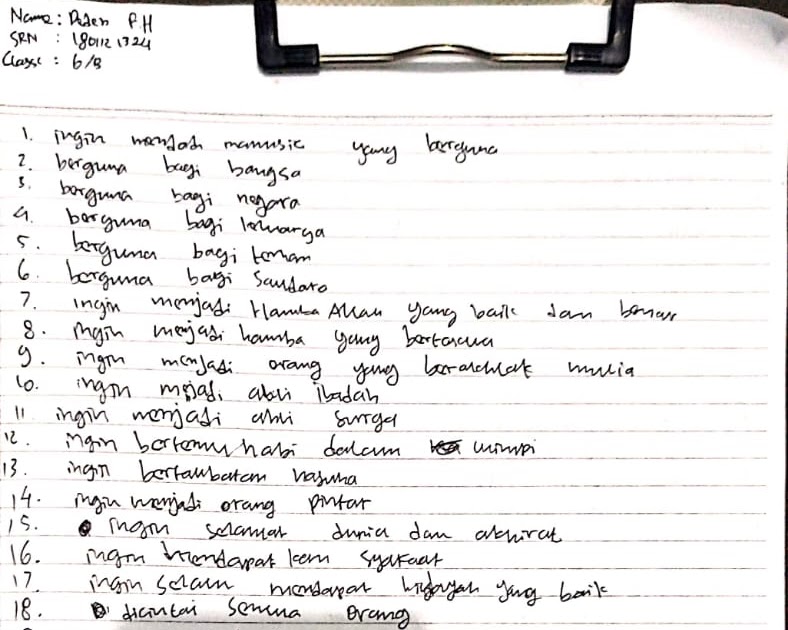 Name : Raden P H
SRN : 180112 1324
Class : 6/B
1. ingin menjadi manusia yang berguna
2. berguna bagi bangsa
3. berguna bagi negara
4. berguna bagi keluarga
5. berguna bagi teman
6. berguna bagi Saudara
7. ingin menjadi Hamba Allah yang baik dan benar
8. ingin menjadi hamba yang bertaqwa
9. ingin menjadi orang yang berakhlak mulia
10. ingin mejadi ahli ibadah
11 ingin menjadi ahli surga
12. ingin bertemu habi dalam mimpi
13. ingin bertaubatan nasuha
14. ingin menjadi orang pintar
15. ingin selamat dunia dan akhirat
16. ingin mendapat kan syafaat
17. ingin selalu mendapat hidayah yang baik
18. dicintai semua orang